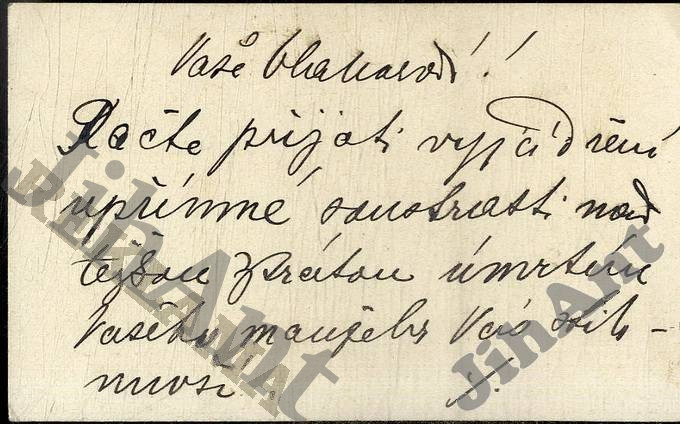 Vaše Blahorodí!
Račte přijati vyjádření
upřímné soustrasti nad
těžkou ztrátou úmrtím
Vašeho manžela Vás
JihAnt
REKLAMA
JihAnt